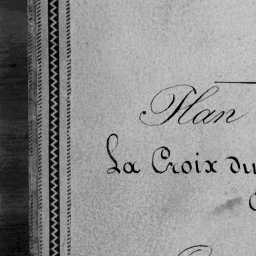 Plan
La Croix du